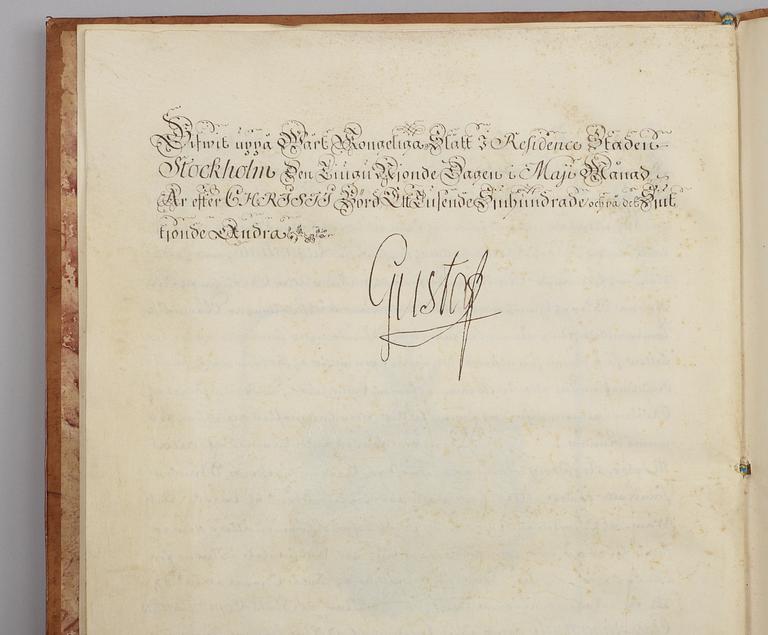 Gifwit uppå Wårt Kongeliga Slått i Residence Staden
Stockholm Den Tiugu Njonde Dagen i Maji Månad
År efter CHRISTI Börd Ett Tusende Siuhundrade och på det Siut
tjonde Andra
Gustaf